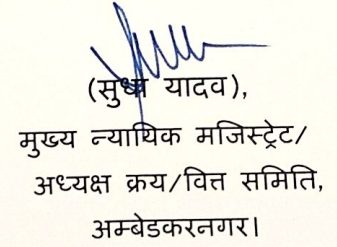 (सुधा यादव),
मुख्य न्यायिक मजिस्ट्रेट/
अध्यक्ष क्रय/वित्त समिति,
अम्बेडकरनगर।